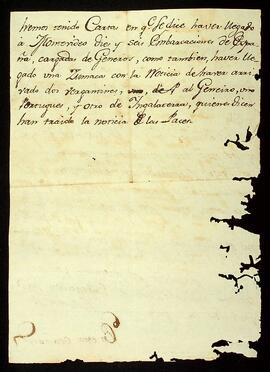 hemos tenido Carta en q.e se dice haver llegado
à Montevideo diez y seis Embarcaciones de Espa
ña, cargadas de Generos, como tambien, haver lle
gado una Zumaca con la Noticia de haver arri
vado dos vergantines, al Geneiro, uno
Portugues, y otro de Ingalaterra, quienes dicen
han traido la noticia las Paces